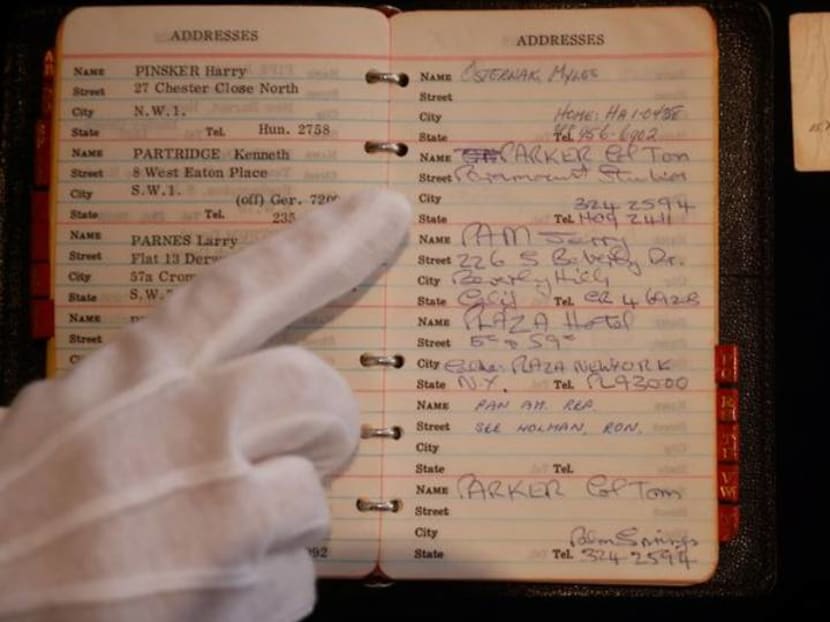 ADDRESSES
NAME PINSKER Harry
Street 27 Chester Close North
City N.W.1.
State Tel. Hun. 2758
NAME PARTRIDGE Kenneth
Street 8 West Eaton Place
City S.W.1.
(off) Ger.
State Tel. 235
NAME PARNES Larry
Street Flat 13
City 57a
State S.W.
NAME
Street
ADDRESSES
NAME OSTERNAK, MYLES
Street
City HOME:
State Tel. 456-6902
NAME PARKER Col Tom
Street Paramount Studios
City 324 2594
State Tel. HO9 2411
NAME PAM Jerry
Street 226 S Beverly Dr.
City Beverly Hills
State Calif Tel. CR 4 6928
NAME PLAZA Hotel
Street 5th & 59th
City PLAZA NEWYORK
State N.Y. Tel. PL93000
NAME PAN AM. REP.
Street SEE HOLMAN, RON.
City
State Tel.
NAME PARKER Col Tom
Street
City Palm Springs
State Tel. 324-2594